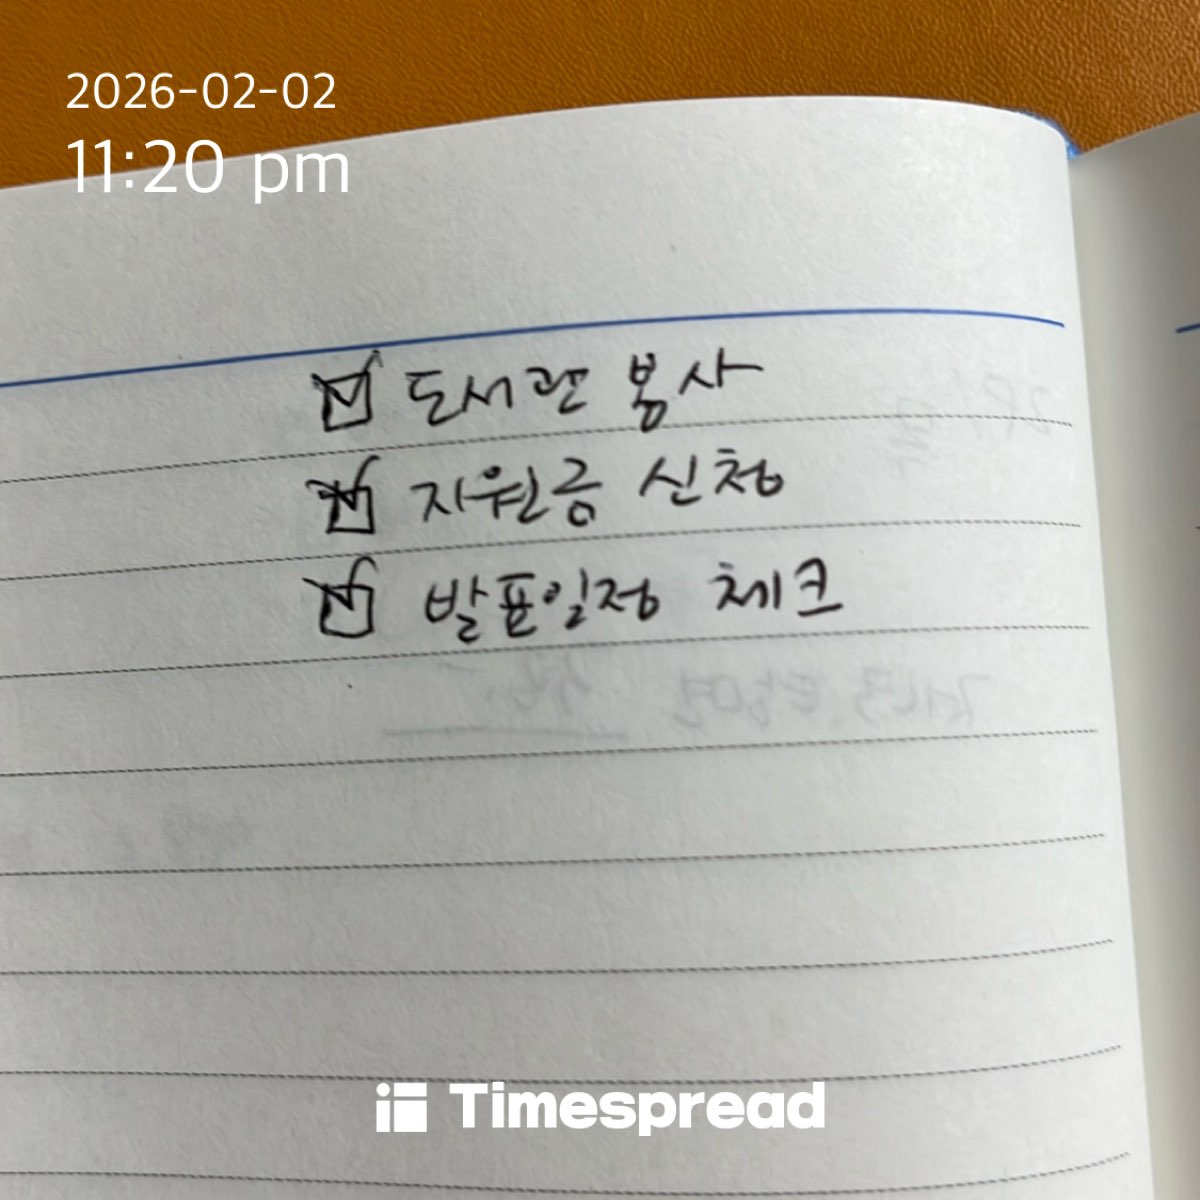 2026-02-02
11:20 pm
도서관 봉사
지원금 신청
발표일정 체크
Timespread